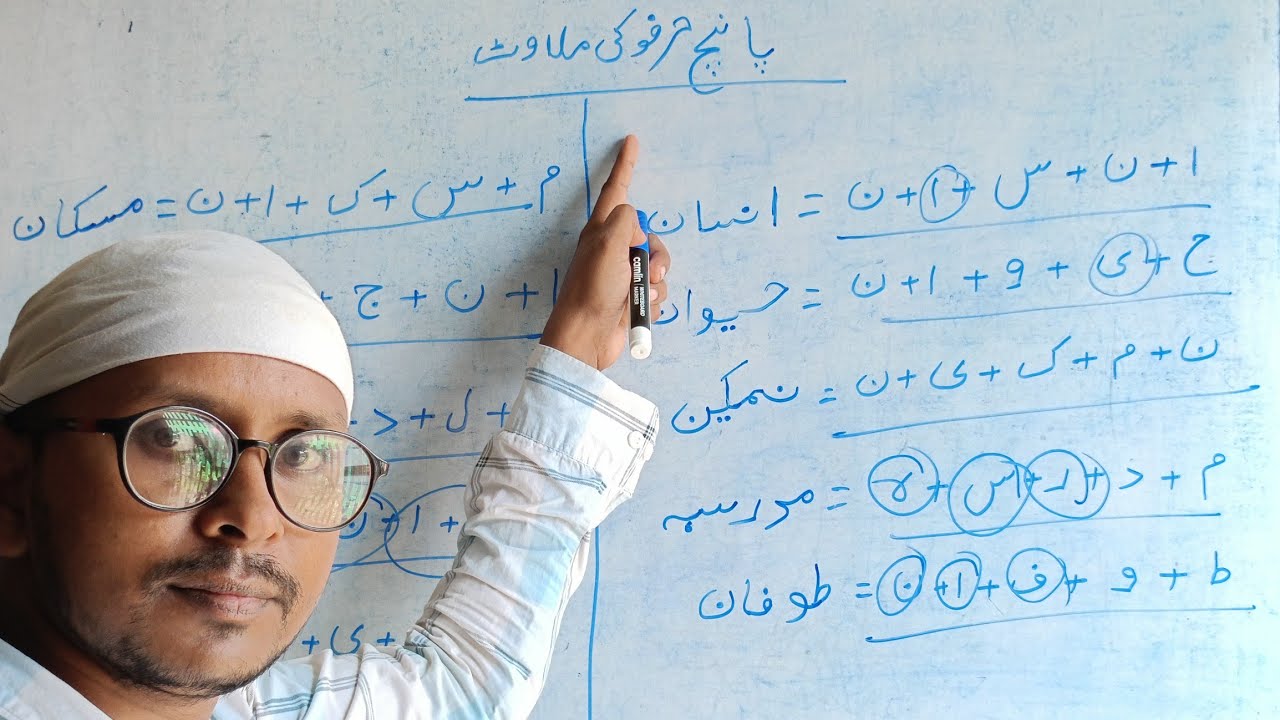 پانچ حرفو کی ملاوٹ
ا + ن + س + ا + ن = انسان
ح + ی + و + ا + ن = حیوان
ن + م + ک + ی + ن = نمکین
م + د + ر + س + ہ = مدرسہ
ط + و + ف + ا + ن = طوفان
م + س + ک + ا + ن = مسکان
ا + ن + ج +
+ ل + د
+ ا + ن
+ ی +
camlin
WHITEBOARD
MARKER